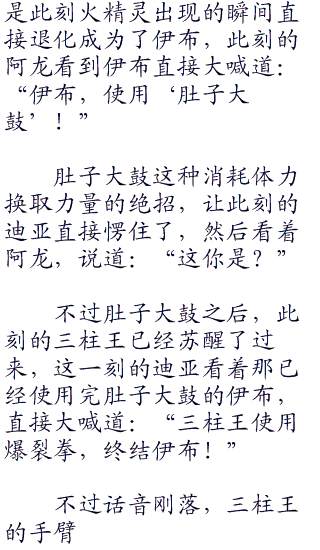 是此刻火精灵出现的瞬间直
接退化成为了伊布，此刻的
阿龙看到伊布直接大喊道：
“伊布，使用‘肚子大
鼓’！”
肚子大鼓这种消耗体力
换取力量的绝招，让此刻的
迪亚直接愣住了，然后看着
阿龙，说道：“这你是？”
不过肚子大鼓之后，此
刻的三柱王已经苏醒了过
来，这一刻的迪亚看着那已
经使用完肚子大鼓的伊布，
直接大喊道：“三柱王使用
爆裂拳，终结伊布！”
不过话音刚落，三柱王
的手臂